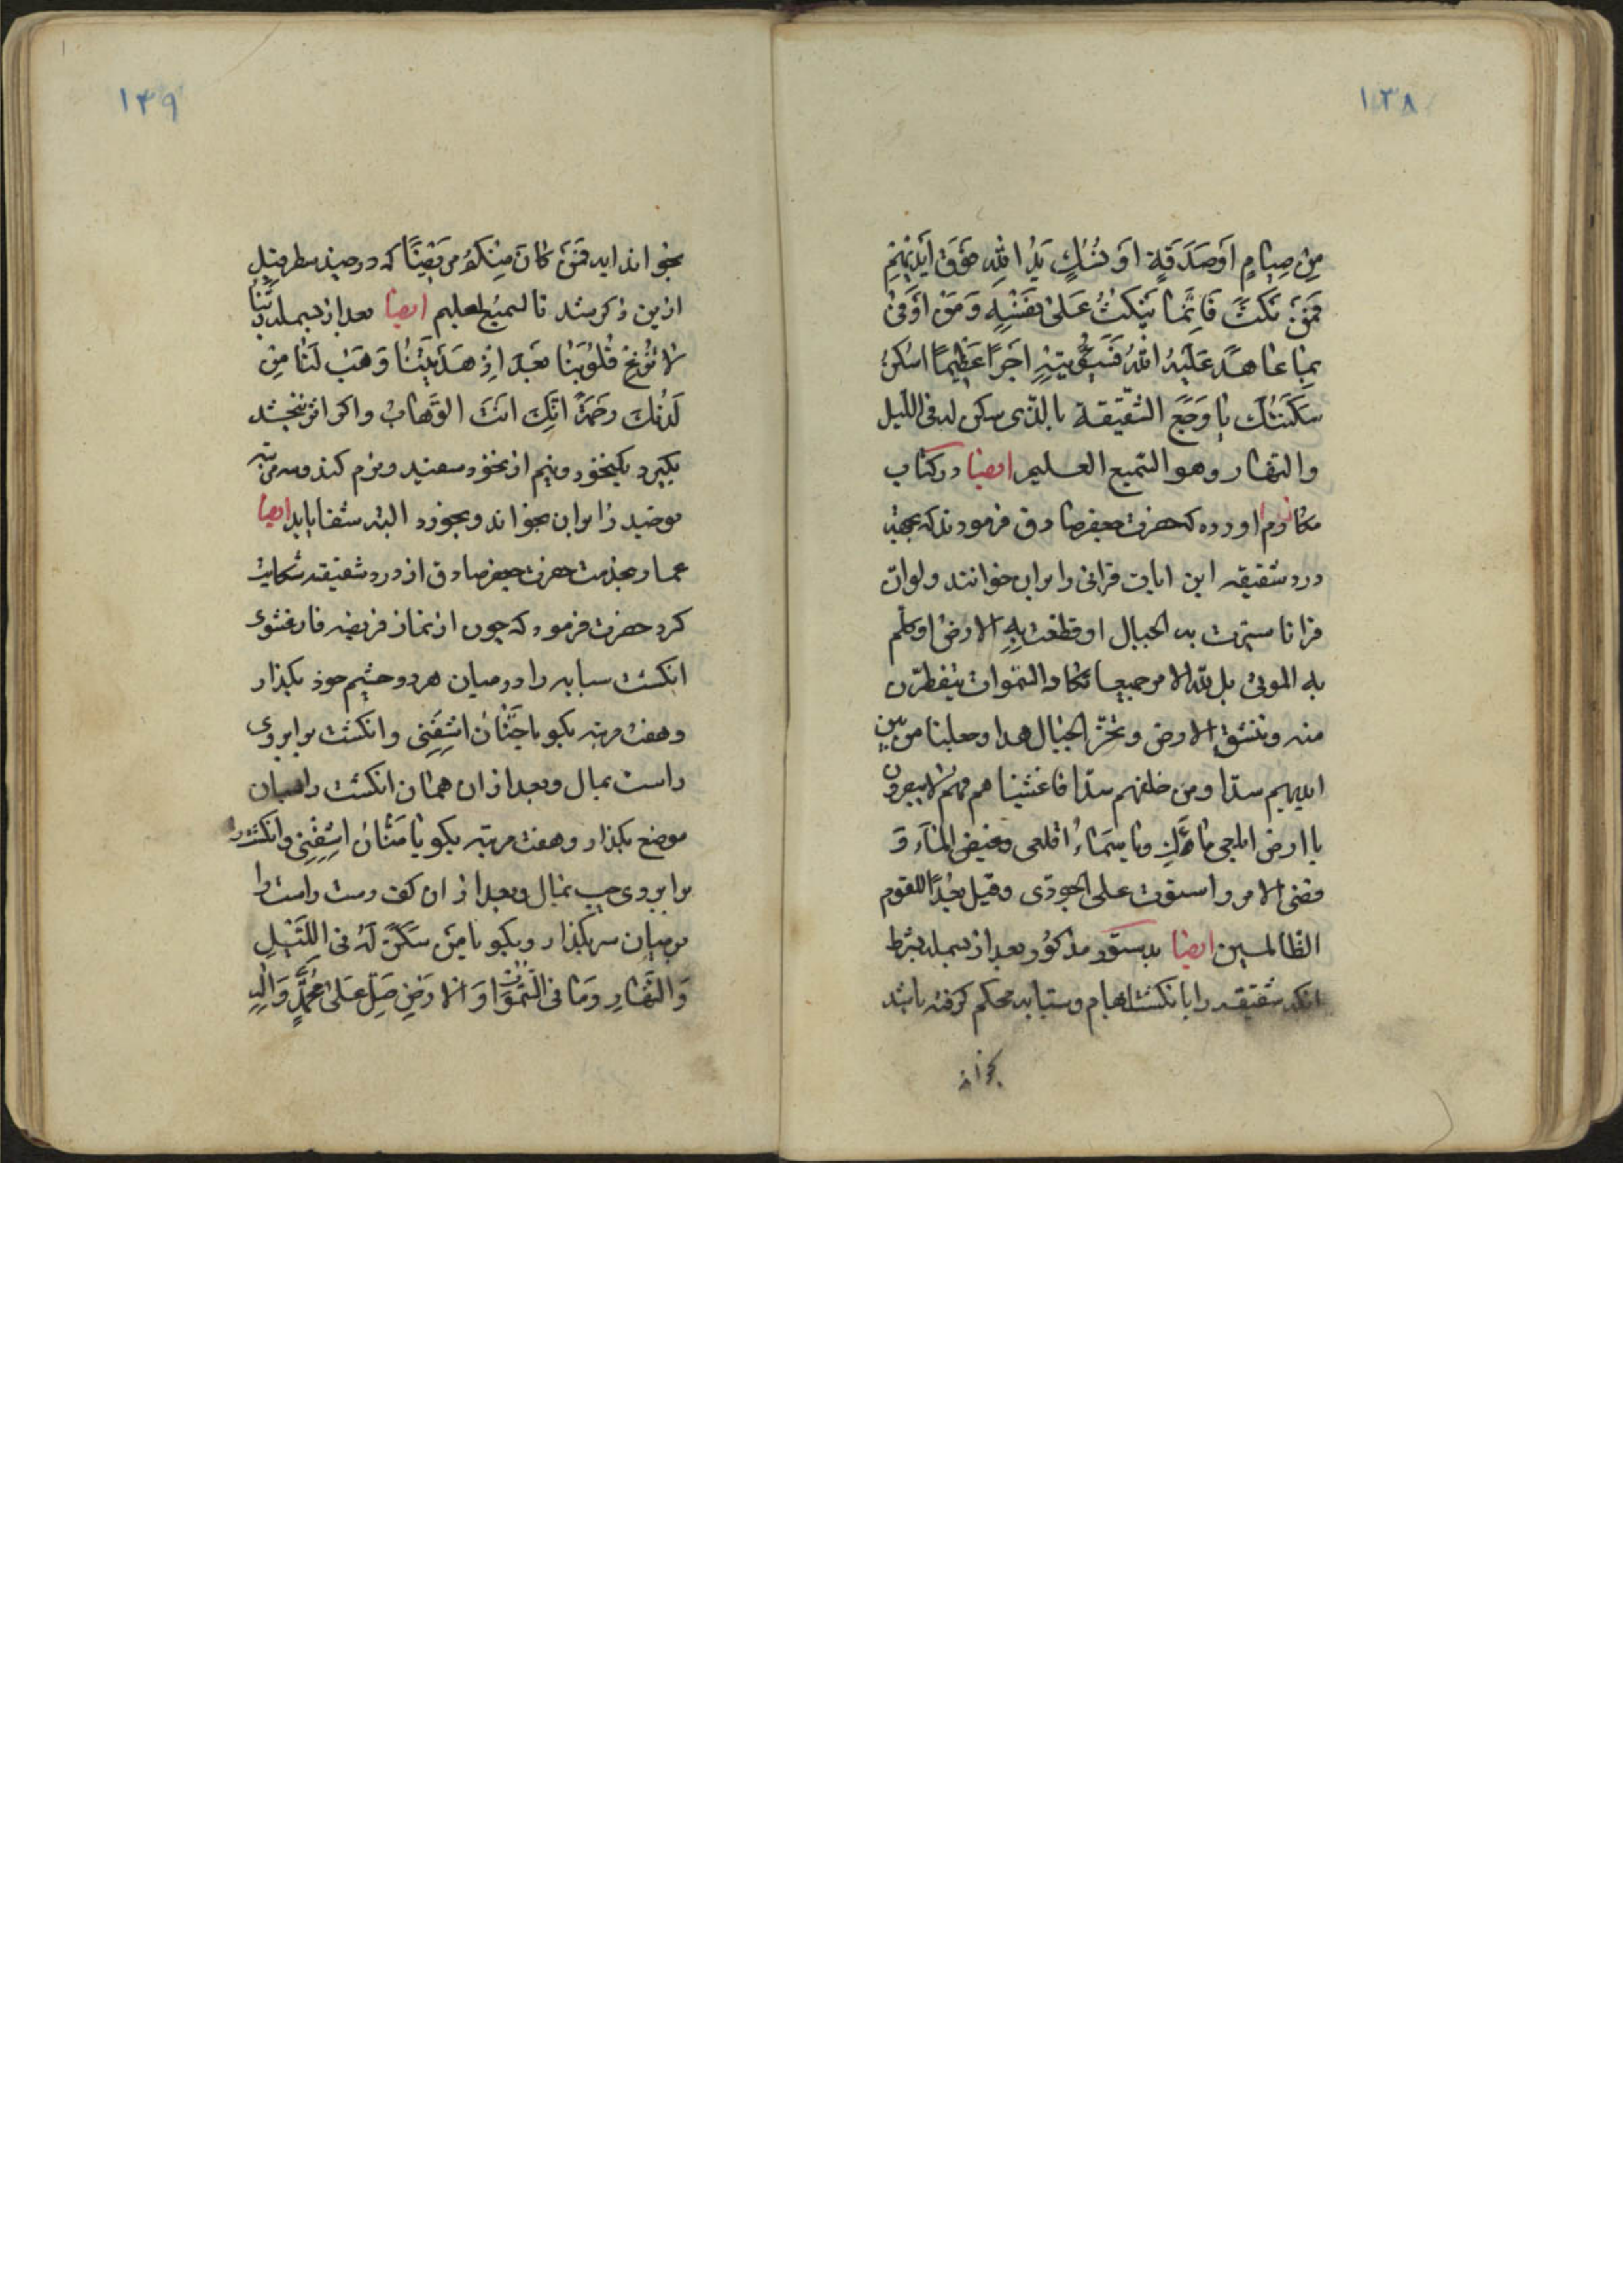 ۱۳۸
مِنْ صِيامٍ اَوْصَدَقَةٍ اَوْ نُسُكٍ يَدُ اللّهِ فَوْقَ اَيْدِيْهِمْ
فَمَنْ نَكَثَ فَاِنَّمٰا يَنْكُثُ عَلىٰ نَفْسِهِ وَمَنْ اَوْفىٰ
بِمٰا عٰاهَدَ عَلَيْهُ اللّهُ فَسَيُؤْتِيْهِ اَجْرًا عَظِيْمًا اسْكُنْ
سَكَّنْتُكَ يٰا وَجَعَ الشَّقيقة بالذّى سكن له فى الليل
والنّهار وهو السّميع العليم ايضا در كتاب
مكارم اورده كه حضرت جعفر صادق فرمودند كه بجهة
درد شقيقه اين ايات قرانى را بران خوانند ولوانّ
قرانا سيّرت به الجبال او قطّعت بِهِ الارض او كلّم
به الموتى بل للّه الامر جميعا تكاد السّموات يتفطّرن
منه وتنشق الارض وتخرّ الجبال هدا وجعلنا من بين
ايديهم سدّا ومن خلفهم سدّا فاغشيناهم فهم لا يبصرون
يا ارض ابلعى مٰاءَكِ ويا سَمٰاءُ اقلعى وغيض المٰاء وَ
قضى الامر واستوت على الجودّى وقيل بُعْدًا للقوم
الظّالمين ايضا بدستور مذكور بعد از بسمله بشرط
انكه شقيقه را بانكشت ابهام وسبّابه محكم كرفته باشد
بخواند
۱۳۹
بخواند ايه فَمَنْ كٰانَ مِنْكُمْ مَرِيْضًا كه در چند سطر قبل
ازين ذكر شد تا السميع العليم ايضا بعد از بسمله رَبَّنٰا
لٰا تُزِغْ قُلُوْبَنٰا بَعْدَ اِذْ هَدَيْتَنٰا وَهَبْ لَنٰا مِنْ
لَدُنْكَ رَحْمَةً اِنَّكَ اَنْتَ الوَهّابُ واكر اثر نبخشد
بكيرد يكنخود ونيم از نخود سفيد ونرم كند وسه مرتبه
توحيد را بران بخواند وبخورد البته شفا يابد ايضا
عمار بخدمت حضرت جعفر صادق از درد شقيقه شكايت
كرد حضرت فرمود كه چون از نماز فريضه فارغ شوى
انكشت سبابه را در ميان هر دو چشم خود بكذار
وهفت مرتبه بكو يا حَنّٰانُ اشْفِنى وانكشت بر ابروى
راست بمال وبعد از ان همان انكشت را بميان
موضع بكذار وهفت مرتبه بكو يٰا مَنّٰانُ اشْفِنِى وانكشت را
بر ابروى چپ بمال وبعد از ان كف دست راست را
بر ميان سر بكذار وبكو يٰا مَنْ سَكَنَ لَهُ فى اللَّيْلِ
وَالنَّهٰارِ وَمٰا فى السَّمٰوٰاتِ وَالْارَضِ صَلِّ عَلىٰ مُحَمَّدٍ وَالِهِ